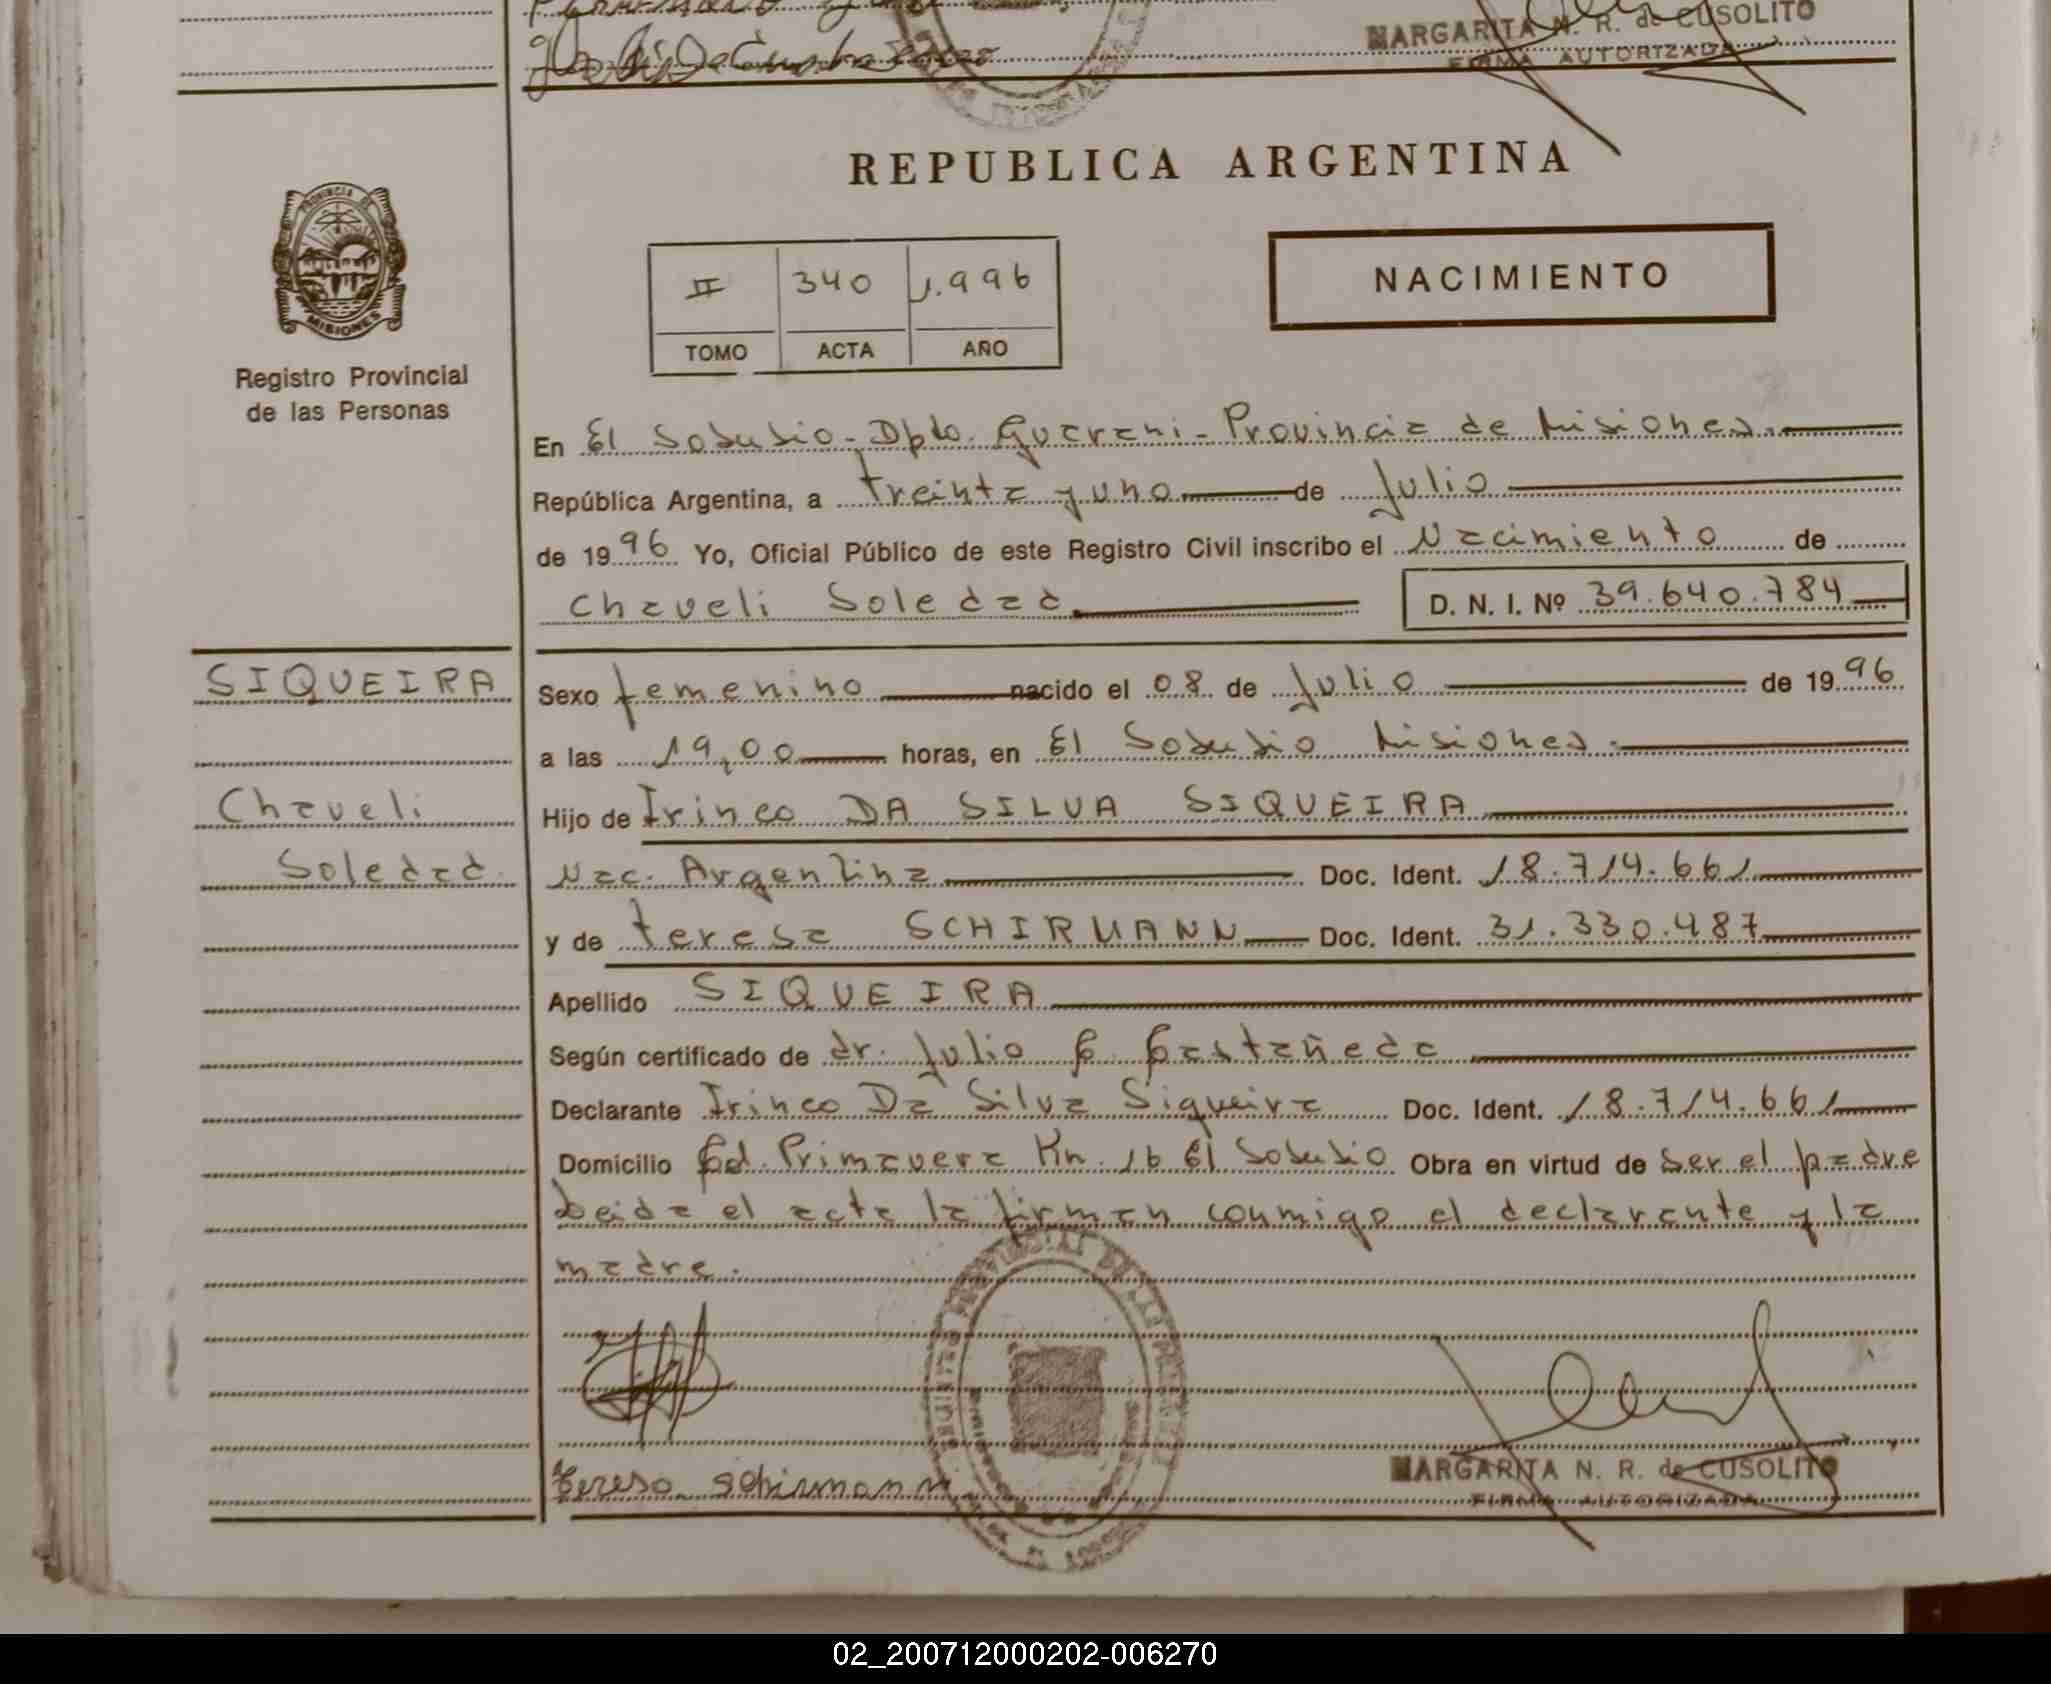 MARGARITA N. R. de CUSOLITO
FIRMA AUTORIZADA
REPUBLICA ARGENTINA
PROVINCIA DE
MISIONES
Registro Provincial
de las Personas
II 340 1.996
TOMO ACTA AÑO
NACIMIENTO
En El Soberbio - Dpto. Guarani - Provincia de Misiones.
República Argentina, a treinta y uno de Julio
de 1996 Yo, Oficial Público de este Registro Civil inscribo el Nacimiento de
Chaveli Soledad D. N. I. Nº 39.640.784
SIQUEIRA
Chaveli
Soledad
Sexo femenino nacido el 08 de Julio de 1996
a las 19,00 horas, en El Soberbio Misiones.
Hijo de Irineo DA SILVA SIQUEIRA
Nac. Argentina Doc. Ident. 18.714.661
y de teresa SCHIRMANN Doc. Ident. 31.330.487
Apellido SIQUEIRA
Según certificado de dr. Julio C. Castañeda
Declarante Irineo Da Silva Siqueira Doc. Ident. 18.714.661
Domicilio Cd. Primavera Km. 16 El Soberbio Obra en virtud de ser el padre
Leida el acta la firman conmigo el declarante y la
madre.
Teresa Schirmann
MARGARITA N. R. de CUSOLITO
FIRMA AUTORIZADA
02_200712000202-006270